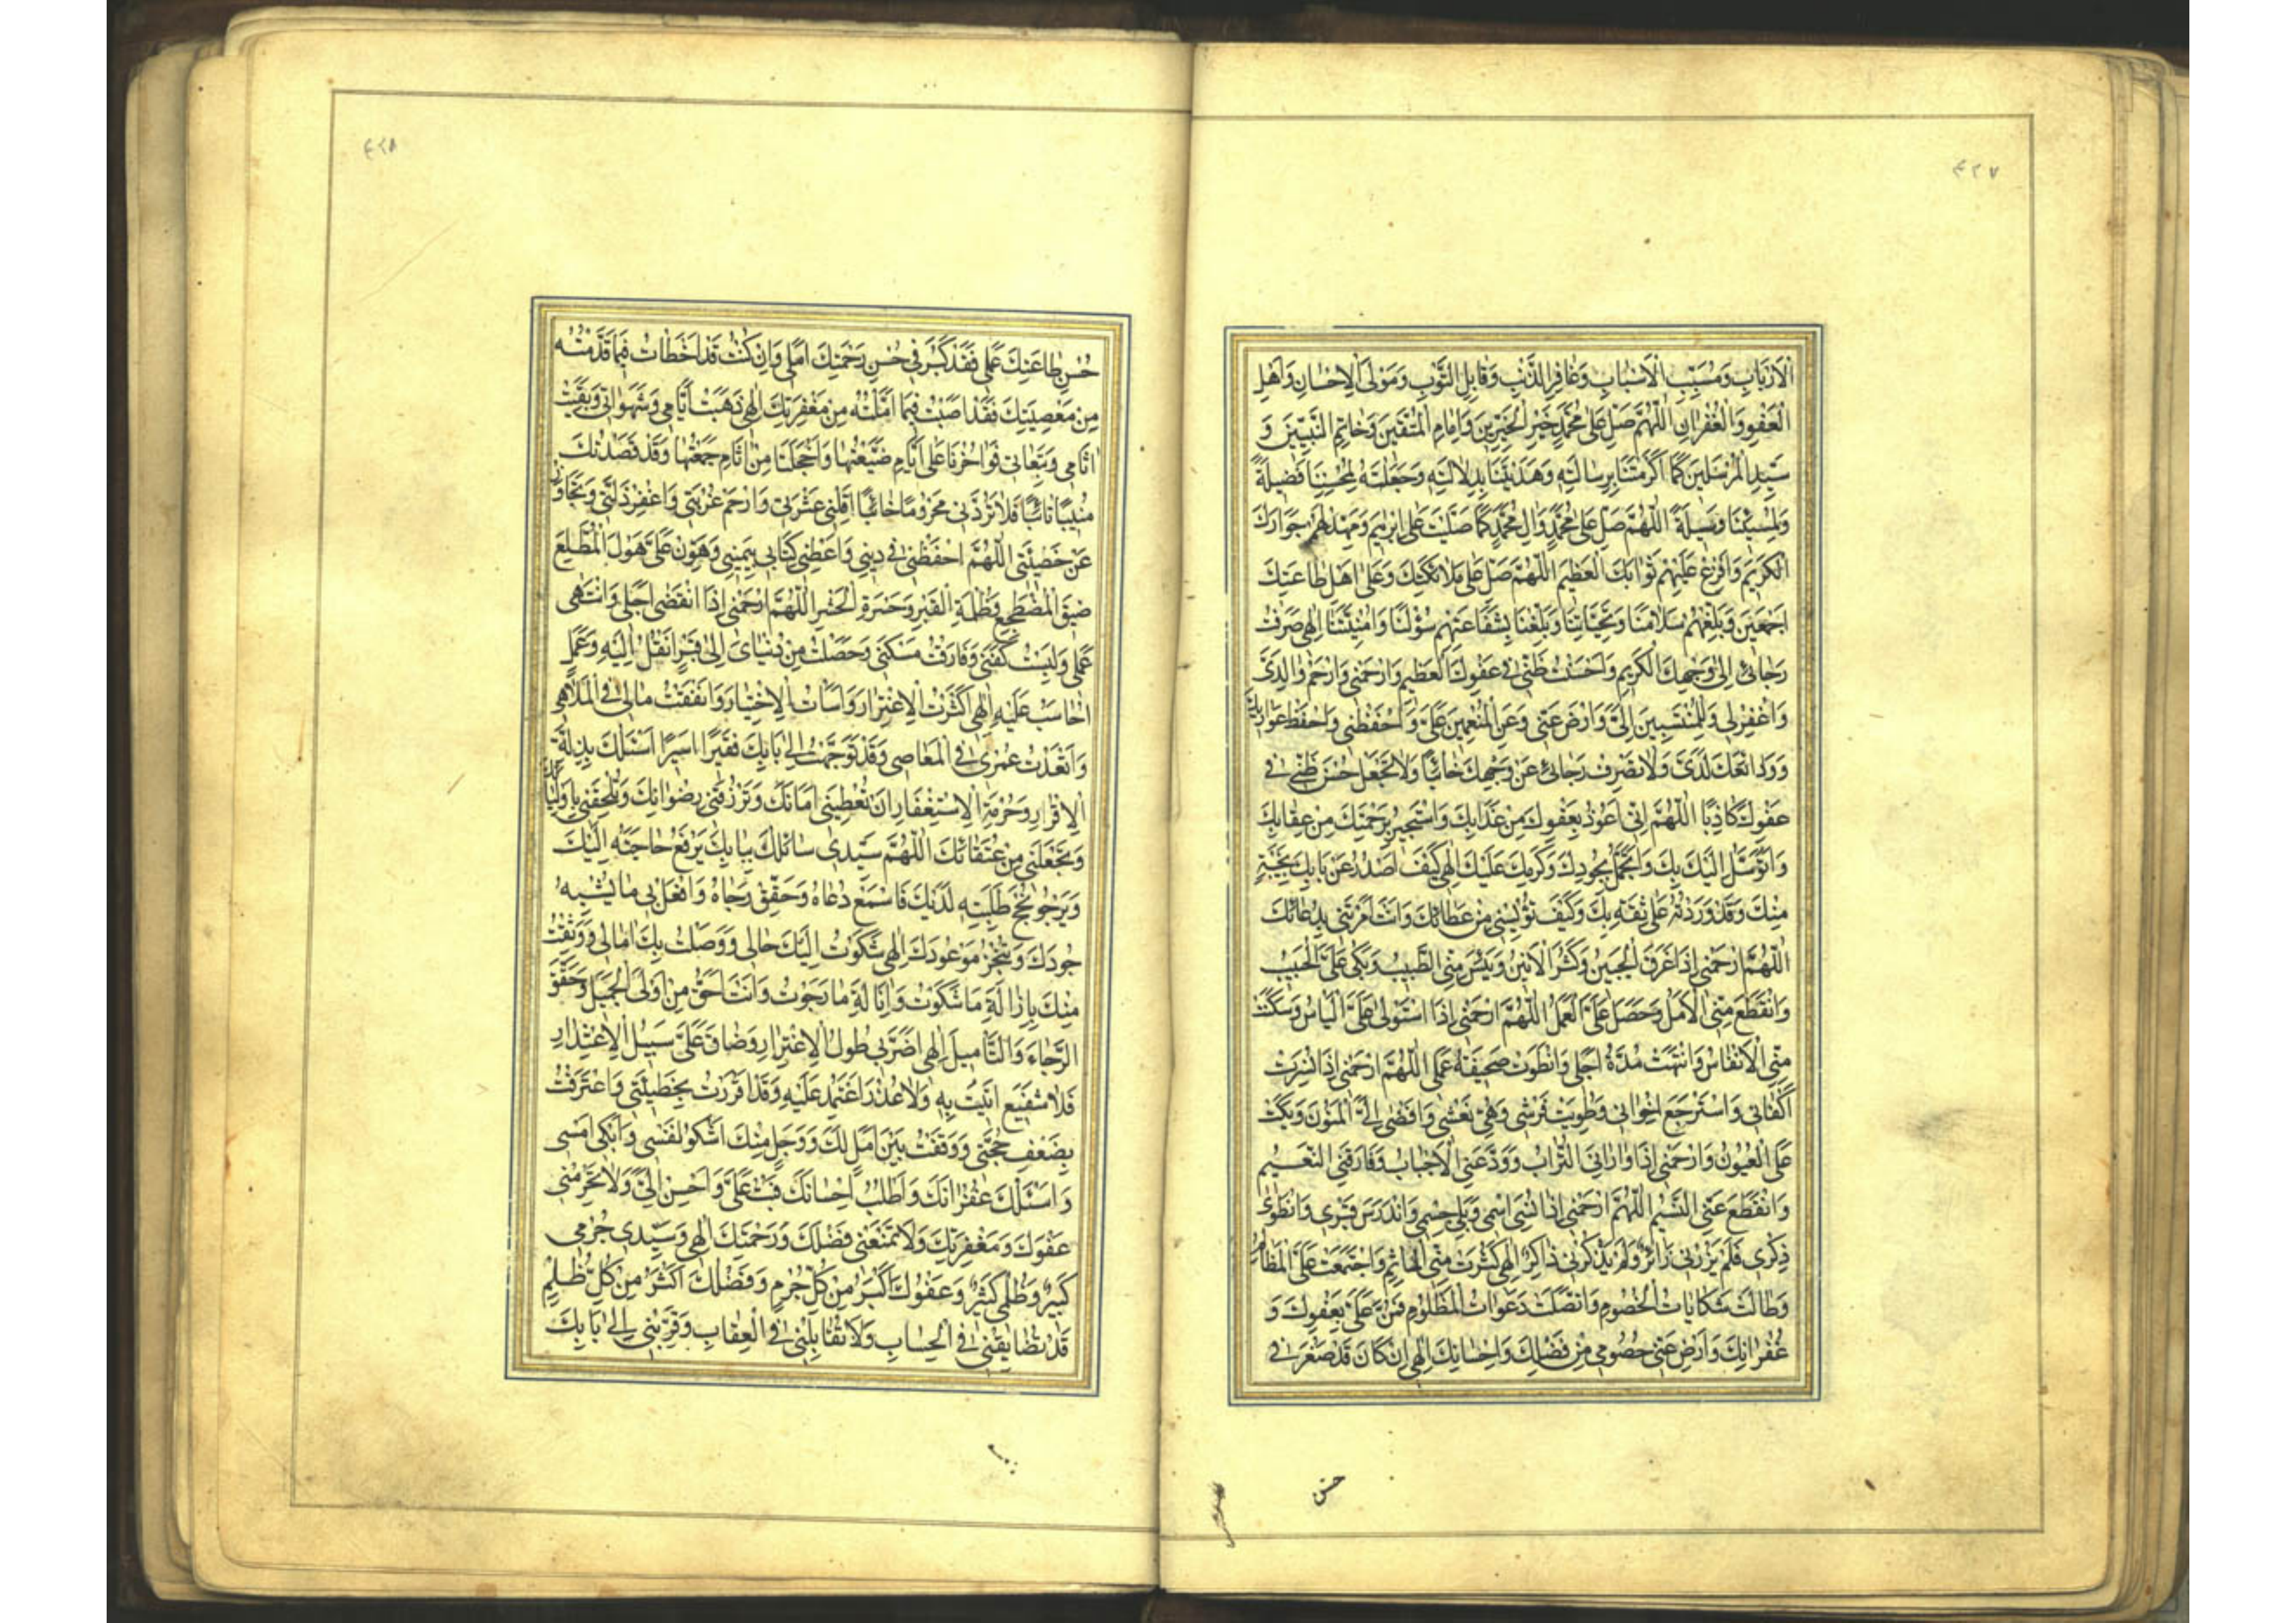 ٤٢٧
الْاَرْبَابِ وَمُسَبِّبِ الْاَسْبَابِ وَغَافِرِ الذَّنْبِ وَقَابِلِ التَّوْبِ وَمَوْلَى الْاِحْسَانِ وَاَهْلِ
الْعَفْوِ وَالْغُفْرَانِ اَللّٰهُمَّ صَلِّ عَلٰى مُحَمَّدٍ خَيْرِ الْخَيِّرِينَ وَاِمَامِ الْمُتَّقِينَ وَخَاتِمِ النَّبِيِّينَ وَ
سَيِّدِ الْمُرْسَلِينَ كَمَا اَكْرَمْتَنَا بِرِسَالَتِهِ وَهَدَيْتَنَا بِدِلَالَتِهِ وَجَعَلْتَهُ لِمُحْسِنِنَا فَضِيلَةً
وَلِمُسِيْئِنَا وَسِيلَةً اَللّٰهُمَّ صَلِّ عَلٰى مُحَمَّدٍ وَاٰلِ مُحَمَّدٍ كَمَا صَلَّيْتَ عَلٰى اِبْرٰهِيمَ وَمَهِّدْ لَهُمْ جِوَارَكَ
الْكَرِيمَ وَاَفْرِغْ عَلَيْهِمْ ثَوَابَكَ الْعَظِيمَ اَللّٰهُمَّ صَلِّ عَلٰى مَلَائِكَتِكَ وَعَلٰى اَهْلِ طَاعَتِكَ
اَجْمَعِينَ وَبَلِّغْهُمْ سَلَامَنَا وَتَحِيَّاتِنَا وَبَلِّغْنَا بِشَفَاعَتِهِمْ سُؤْلَنَا وَاُمْنِيَّتَنَا اِلٰهِى صَرَفْتُ
رَجَائِى اِلٰى وَجْهِكَ الْكَرِيمِ وَاَحْسَنْتُ ظَنِّى فِى عَفْوِكَ الْعَظِيمِ وَارْحَمْنِى وَارْحَمْ وَالِدَىَّ
وَاغْفِرْ لِى وَلِلْمُنْتَسِبِينَ اِلَىَّ وَارْضَ عَنِّى وَعَنِ الْمُنْعِمِينَ عَلَىَّ وَاحْفَظْنِى وَاحْفَظْ عَوَارِيَكَ
وَوَدَائِعَكَ لَدَىَّ وَلَا تَصْرِفْ رَجَائِى عَنْ وَجْهِكَ خَائِبًا وَلَا تَجْعَلْ حُسْنَ ظَنِّى فِى
عَفْوِكَ كَاذِبًا اَللّٰهُمَّ اِنِّى اَعُوذُ بِعَفْوِكَ مِنْ عَذَابِكَ وَاَسْتَجِيرُ بِرَحْمَتِكَ مِنْ عِقَابِكَ
وَاَتَوَسَّلُ اِلَيْكَ بِكَ وَاَتَحَمَّلُ بِجُودِكَ وَكَرَمِكَ عَلَيْكَ اِلٰهِى كَيْفَ اَصْدُرُ عَنْ بَابِكَ بِخَيْبَةٍ
مِنْكَ وَقَدْ وَرَدْتُهُ عَلٰى ثِقَةٍ بِكَ وَكَيْفَ تُؤْيِسُنِى مِنْ عَطَائِكَ وَاَنْتَ اَمَرْتَنِى بِدُعَائِكَ
اَللّٰهُمَّ ارْحَمْنِى اِذَا عَرِقَ الْجَبِينُ وَكَثُرَ الْاَنِينُ وَيَئِسَ مِنِّى الطَّبِيبُ وَبَكٰى عَلَىَّ الْحَبِيبُ
وَانْقَطَعَ مِنِّى الْاَمَلُ وَحَصَلَ عَلَىَّ الْعَمَلُ اَللّٰهُمَّ ارْحَمْنِى اِذَا اسْتَوْلٰى عَلَىَّ الْيَاْسُ وَسَكَنَتْ
مِنِّى الْاَنْفَاسُ وَانْتَهَتْ مُدَّةُ اَجَلِى وَانْطَوَتْ صَحِيفَةُ عَمَلِى اَللّٰهُمَّ ارْحَمْنِى اِذَا نُشِرَتْ
اَكْفَانِى وَاسْتَرْجَعَ اِخْوَانِى وَطُوِيَتْ فُرُشِى وَهُيِّئَ نَعْشِى وَاَفْضٰى اِلَىَّ الْمَنُونُ وَبَكَتْ
عَلَىَّ الْعُيُونُ وَارْحَمْنِى اِذَا وَارَانِىَ التُّرَابُ وَوَدَّعَنِىَ الْاَحْبَابُ وَفَارَقَنِىَ النَّعِيمُ
وَانْقَطَعَ عَنِّى النَّسِيمُ اَللّٰهُمَّ ارْحَمْنِى اِذَا نُسِىَ اسْمِى وَبَلِىَ جِسْمِى وَانْدَرَسَ قَبْرِى وَانْطَوٰى
ذِكْرِى فَلَمْ يَزُرْنِى زَائِرٌ وَلَمْ يَذْكُرْنِى ذَاكِرٌ اِلٰهِى كَثُرَتْ مِنِّى الْمَاٰثِمُ وَاجْتَمَعَتْ عَلَىَّ الْمَظَالِمُ
وَطَالَتْ شَكَايَاتُ الْخُصُومِ وَاتَّصَلَتْ دَعَوَاتُ الْمَظْلُومِ فَمُنَّ عَلَىَّ بِعَفْوِكَ وَ
غُفْرَانِكَ وَاَرْضِ عَنِّى خُصُومِى مِنْ فَضْلِكَ وَاِحْسَانِكَ اِلٰهِى اِنْ كَانَ قَدْ صَغُرَ فِى
حسن
٤٢٨
حُسْنِ طَاعَتِكَ عَمَلِى فَقَدْ كَبُرَ فِى حُسْنِ رَحْمَتِكَ اَمَلِى وَاِنْ كُنْتُ قَدْ اَخْطَاْتُ فِيمَا قَدَّمْتُهُ
مِنْ مَعْصِيَتِكَ فَقَدْ اَصَبْتُ فِيمَا اَمَّلْتُهُ مِنْ مَغْفِرَتِكَ اِلٰهِى ذَهَبَتْ اَيَّامِى وَشَهَوَاتِى وَبَقِيَتْ
اٰثَامِى وَتَبِعَاتِى فَوَاحُزْنَا عَلٰى اَيَّامٍ ضَيَّعْتُهَا وَاخَجْلَتَا مِنْ اٰثَامٍ جَمَعْتُهَا وَقَدْ قَصَدْتُكَ
مُنِيبًا تَائِبًا فَلَا تَرُدَّنِى مَحْرُومًا خَائِبًا اَقِلْنِى عَثْرَتِى وَارْحَمْ غُرْبَتِى وَاغْفِرْ ذَلَّتِى وَتَجَاوَزْ
عَنْ خَطِيئَتِى اَللّٰهُمَّ احْفَظْنِى فِى دِينِى وَاَعْطِنِى كِتَابِى بِيَمِينِى وَهَوِّنْ عَلَىَّ هَوْلَ الْمُطَّلَعِ
ضِيقَ الْمَضْجَعِ وَظُلْمَةَ الْقَبْرِ وَحَسْرَةَ الْحَشْرِ اَللّٰهُمَّ ارْحَمْنِى اِذَا انْقَضٰى اَجَلِى وَانْتَهٰى
عَمَلِى وَلَبِسْتُ كَفَنِى وَفَارَقْتُ مَسْكَنِى وَحَصَلْتُ مِنْ دُنْيَاىَ اِلٰى قَبْرٍ اَنْقُلُ اِلَيْهِ وَعَمَلٍ
اُحَاسَبُ عَلَيْهِ اِلٰهِى اَكْثَرْتُ الْاِغْتِرَارَ وَاَسَاْتُ الْاِخْتِيَارَ وَاَنْفَقْتُ مَالِى فِى الْمَلَاهِى
وَاَنْفَدْتُ عُمْرِى فِى الْمَعَاصِى وَقَدْ تَوَجَّهْتُ اِلٰى بَابِكَ فَقِيرًا اَسِيرًا اَسْئَلُكَ بِذِلَّةِ
الْاِقْرَارِ وَحُرْمَةِ الْاِسْتِغْفَارِ اَنْ تُعْطِيَنِى اَمَانَكَ وَتَرْزُقَنِى رِضْوَانَكَ وَتُلْحِقَنِى بِاَوْلِيَائِكَ
وَتَجْعَلَنِى مِنْ عُتَقَائِكَ اَللّٰهُمَّ سَيِّدِى سَائِلُكَ بِبَابِكَ يَرْفَعُ حَاجَتَهُ اِلَيْكَ
وَيَرْجُو نُجْحَ طَلِبَتِهِ لَدَيْكَ فَاسْمَعْ دُعَاهُ وَحَقِّقْ رَجَاهُ وَافْعَلْ بِى مَا يُشْبِهُ
جُودَكَ وَيُنْجِزُ مَوْعُودَكَ اِلٰهِى شَكَوْتُ اِلَيْكَ حَالِى وَوَصَلْتُ بِكَ اٰمَالِى وَوَثِقْتُ
مِنْكَ بِاِزَالَةِ مَا شَكَوْتُ وَاِنَالَةِ مَا رَجَوْتُ وَاَنْتَ اَحَقُّ مَنْ اَوْلَى الْجَمِيلَ وَحَقَّقَ
الرَّجَاءَ وَالتَّاْمِيلَ اِلٰهِى اَضَرَّ بِى طُولُ الْاِغْتِرَارِ وَضَاقَ عَلَىَّ سَبِيلُ الْاِعْتِذَارِ
فَلَا شَفِيعَ اَتَيْتُ بِهِ وَلَا عُذْرَ اَعْتَمِدُ عَلَيْهِ وَقَدْ اَقْرَرْتُ بِخَطِيئَتِى وَاعْتَرَفْتُ
بِضَعْفِ حُجَّتِى وَوَقَفْتُ بَيْنَ اَمَلٍ لَكَ وَوَجَلٍ مِنْكَ اَشْكُو لِنَفْسِى وَاَبْكِى اَمْسِى
وَاَسْئَلُكَ غُفْرَانَكَ وَاَطْلُبُ اِحْسَانَكَ فَتُبْ عَلَىَّ وَاَحْسِنْ اِلَىَّ وَلَا تَحْرِمْنِى
عَفْوَكَ وَمَغْفِرَتَكَ وَلَا تَمْنَعْنِى فَضْلَكَ وَرَحْمَتَكَ اِلٰهِى وَسَيِّدِى جُرْمِى
كَبِيرٌ وَظُلْمِى كَثِيرٌ وَعَفْوُكَ اَكْبَرُ مِنْ كُلِّ جُرْمٍ وَفَضْلُكَ اَكْثَرُ مِنْ كُلِّ ظُلْمٍ
فَلَا تُضَايِقْنِى فِى الْحِسَابِ وَلَا تُقَابِلْنِى فِى الْعِقَابِ وَقَرِّبْنِى اِلٰى بَابِكَ